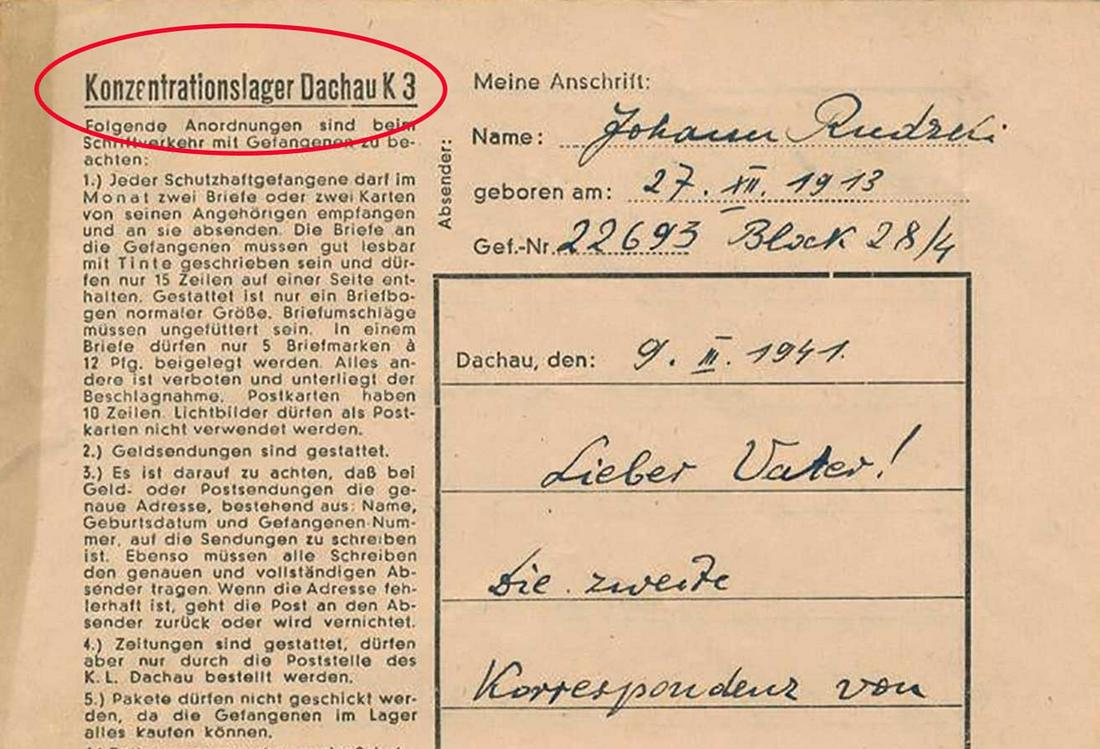 Konzentrationslager Dachau K 3
Folgende Anordnungen sind beim
Schriftverkehr mit Gefangenen zu be-
achten:
1.) Jeder Schutzhaftgefangene darf im
Monat zwei Briefe oder zwei Karten
von seinen Angehörigen empfangen
und an sie absenden. Die Briefe an
die Gefangenen müssen gut lesbar
mit Tinte geschrieben sein und dür-
fen nur 15 Zeilen auf einer Seite ent-
halten. Gestattet ist nur ein Briefbo-
gen normaler Größe. Briefumschläge
müssen ungefüttert sein. In einem
Briefe dürfen nur 5 Briefmarken à
12 Pfg. beigelegt werden. Alles an-
dere ist verboten und unterliegt der
Beschlagnahme. Postkarten haben
10 Zeilen. Lichtbilder dürfen als Post-
karten nicht verwendet werden.
2.) Geldsendungen sind gestattet.
3.) Es ist darauf zu achten, daß bei
Geld- oder Postsendungen die ge-
naue Adresse, bestehend aus: Name,
Geburtsdatum und Gefangenen-Num-
mer, auf die Sendungen zu schreiben
ist. Ebenso müssen alle Schreiben
den genauen und vollständigen Ab-
sender tragen. Wenn die Adresse feh-
lerhaft ist, geht die Post an den Ab-
sender zurück oder wird vernichtet.
4.) Zeitungen sind gestattet, dürfen
aber nur durch die Poststelle des
K. L. Dachau bestellt werden.
5.) Pakete dürfen nicht geschickt wer-
den, da die Gefangenen im Lager
alles kaufen können.
Absender:
Meine Anschrift:
Name: Johann Rudzki
geboren am: 27. XII. 1913
Gef.-Nr. 22693 Block 28/4
Dachau, den: 9. III. 1941.
Lieber Vater!
Die zweite
Korrespondenz von